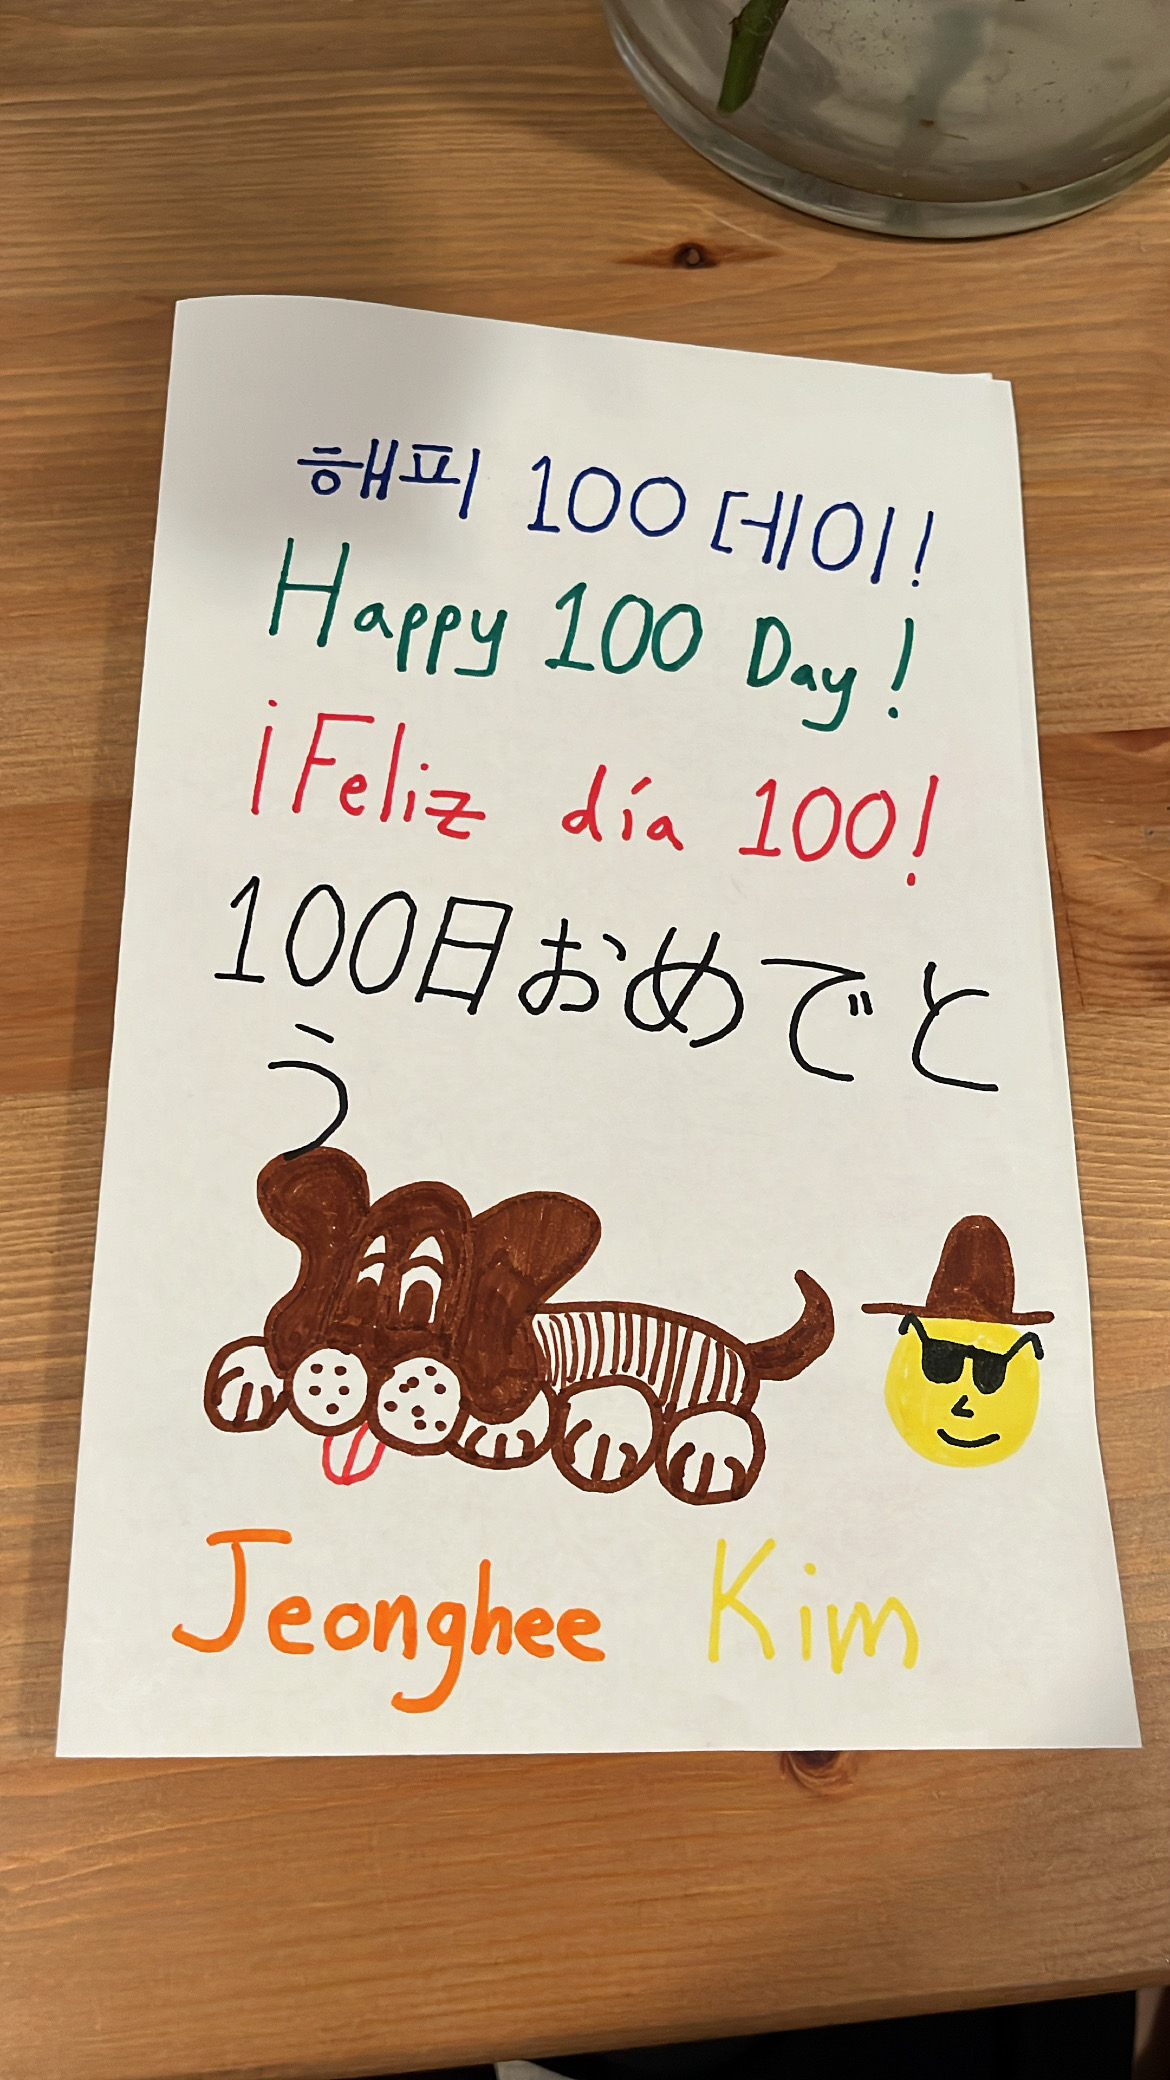 해피 100 데이!
Happy 100 Day!
¡Feliz día 100!
100日おめでと
う
Jeonghee Kim